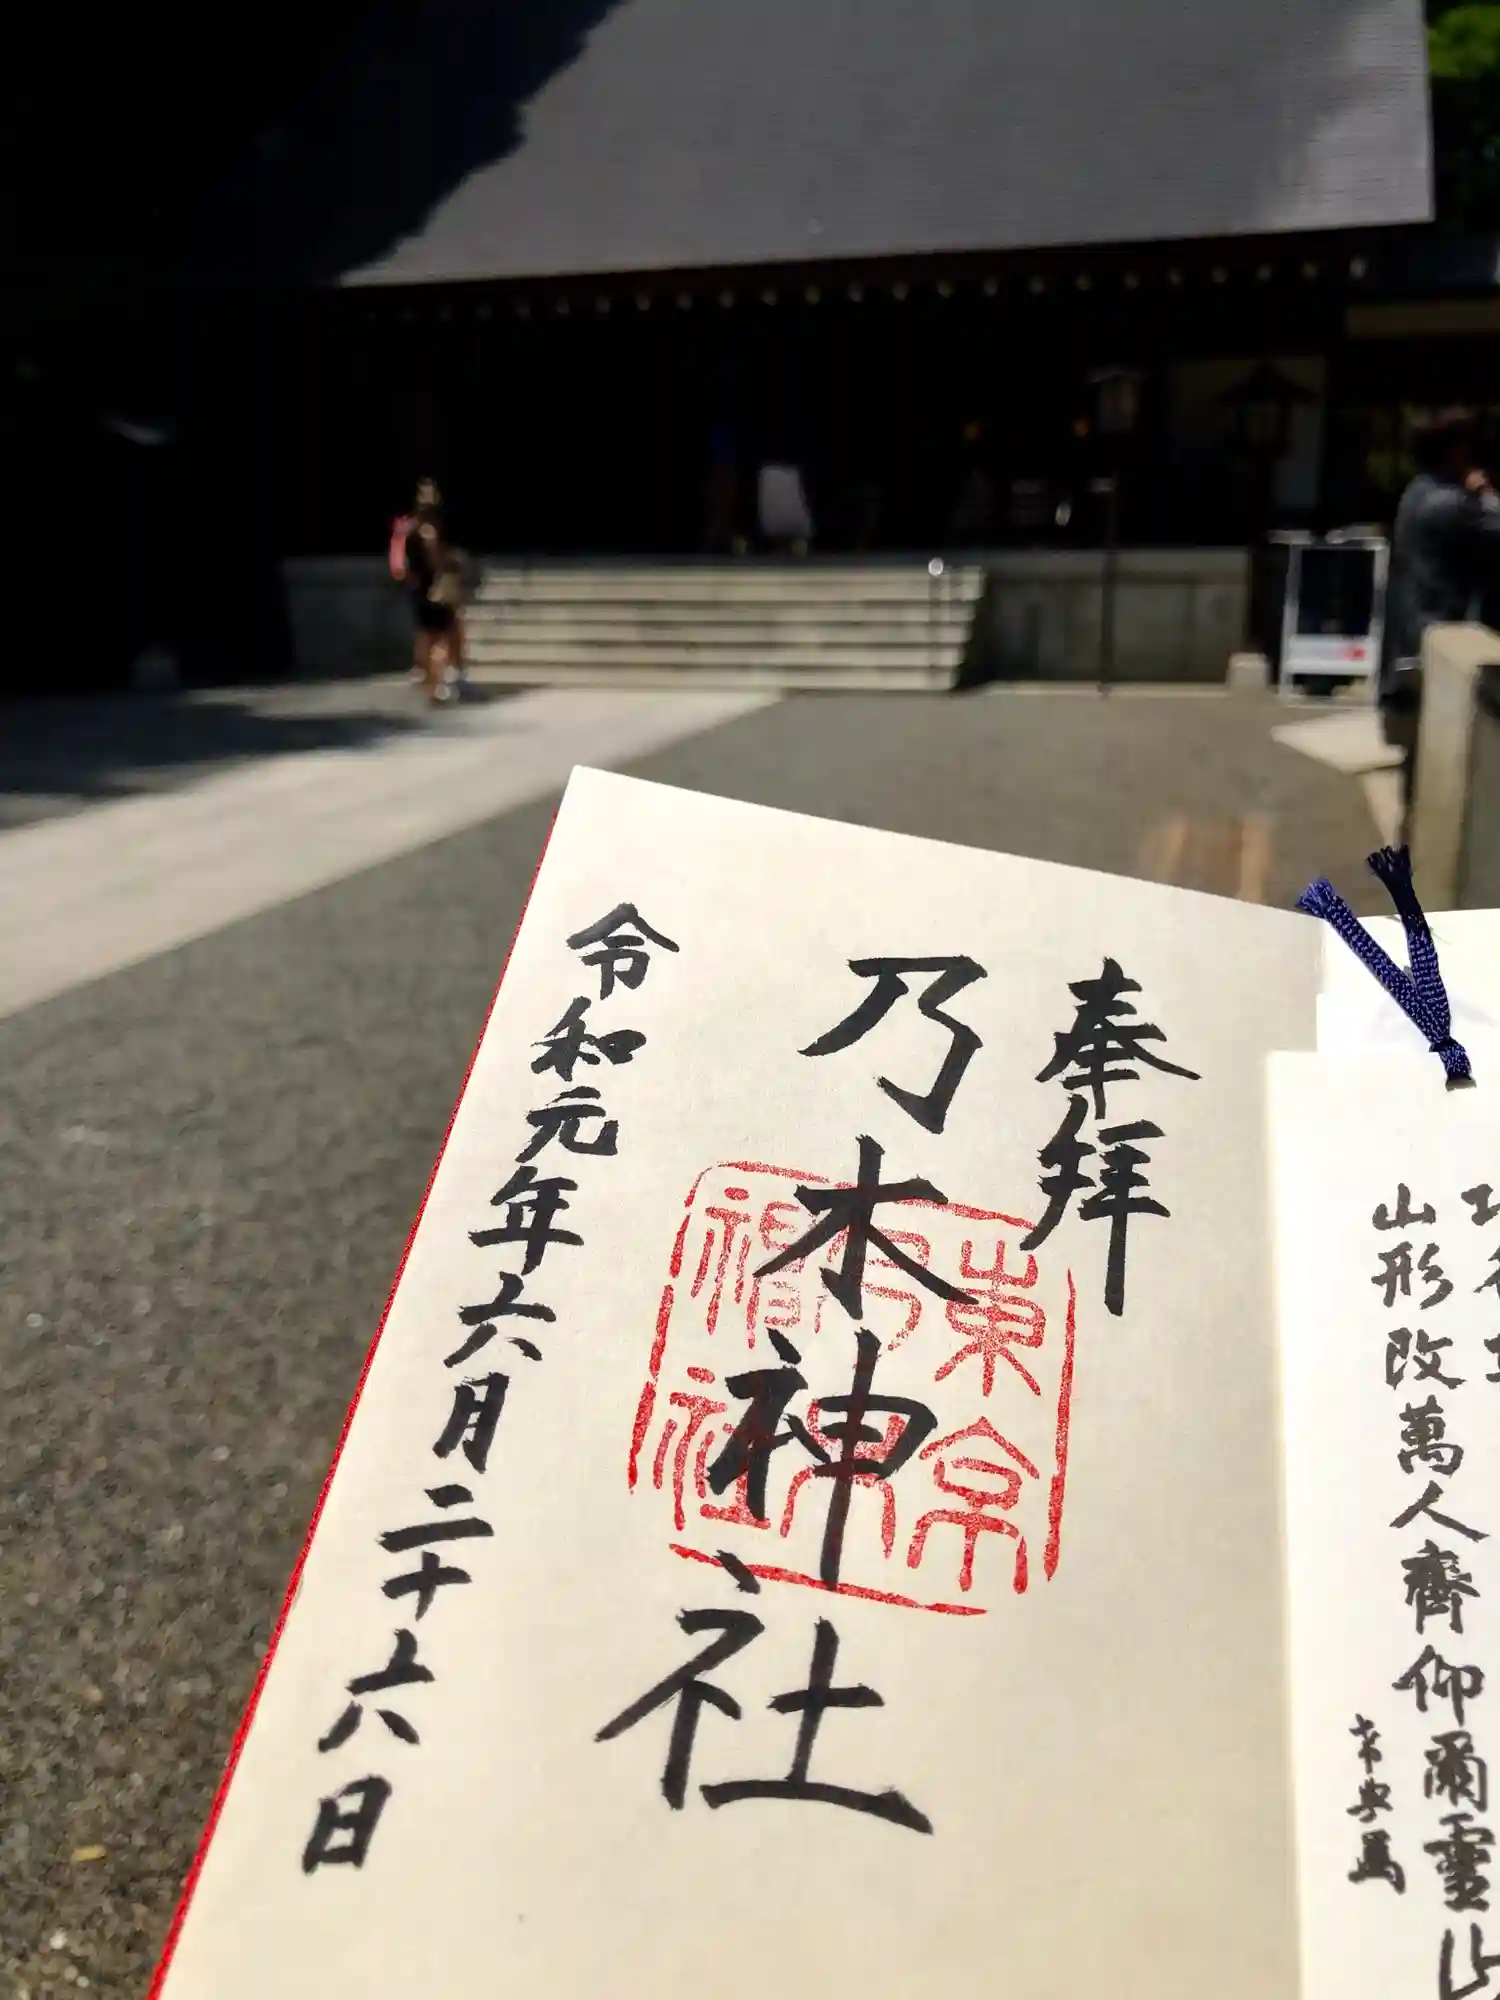 奉拝
乃木神社
東京
乃木
神社
令和元年六月二十六日
山形改萬人齊仰爾霊山
希典書